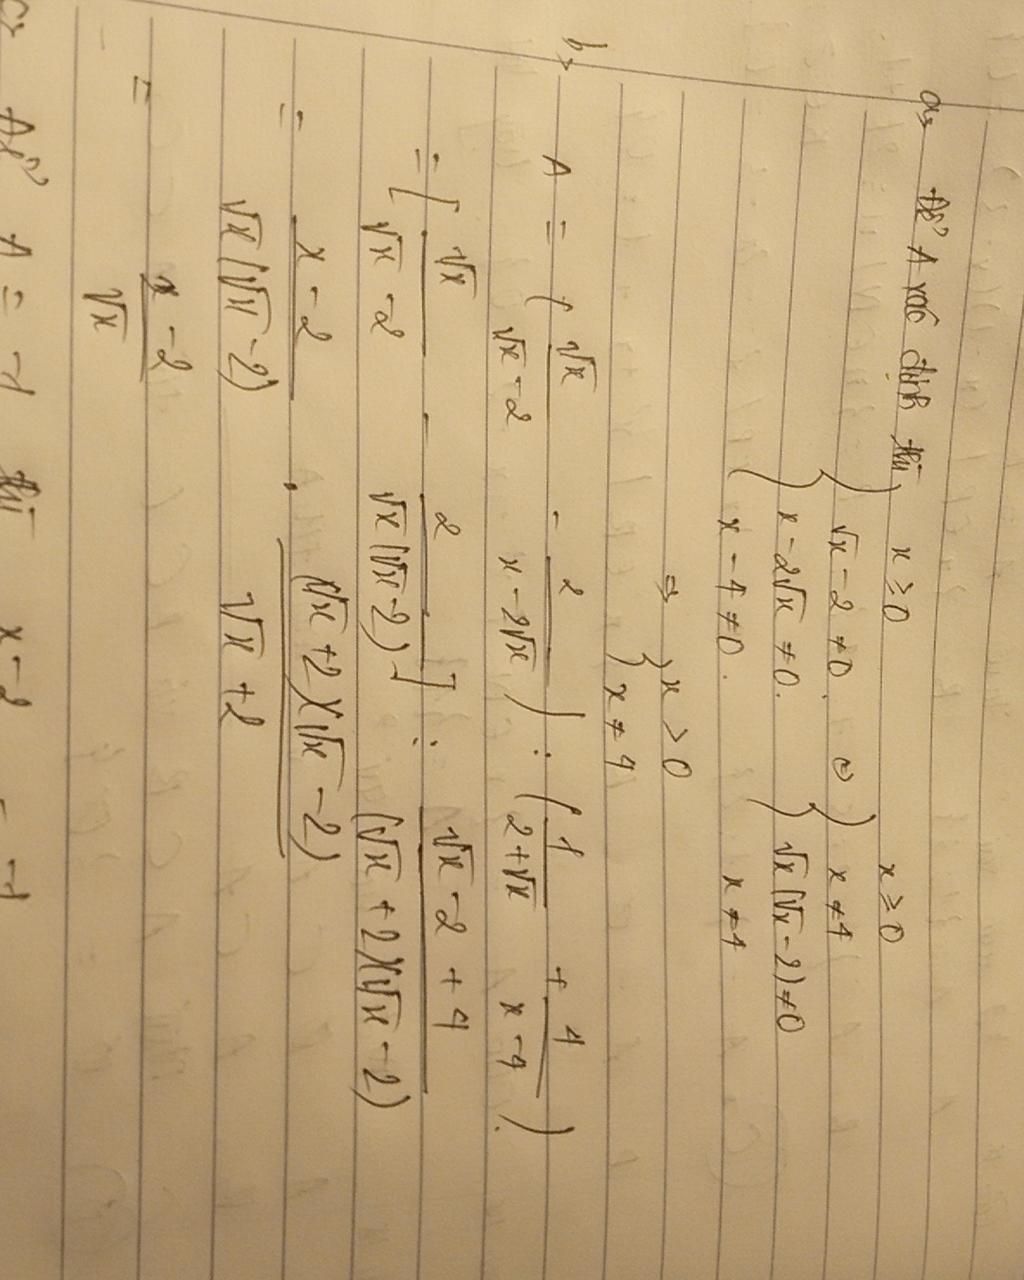 a, Để A xác định thì { x ≥ 0
√x - 2 ≠ 0 . ⇔ { x ≥ 0
x - 2√x ≠ 0 . x ≠ 4
x - 4 ≠ 0 . √x(√x - 2) ≠ 0
x ≠ 4
⇒ { x > 0
x ≠ 4
b, A = ( √x / (√x - 2) - 2 / (x - 2√x) ) : ( 1 / (2 + √x) + 4 / (x - 4) )
= [ √x / (√x - 2) - 2 / (√x(√x - 2)) ] : (√x - 2 + 4) / ((√x + 2)(√x - 2))
= (x - 2) / (√x(√x - 2)) . ((√x + 2)(√x - 2)) / (√x + 2)
= (x - 2) / √x
c, Để A = -1 thì x - 2 = -1